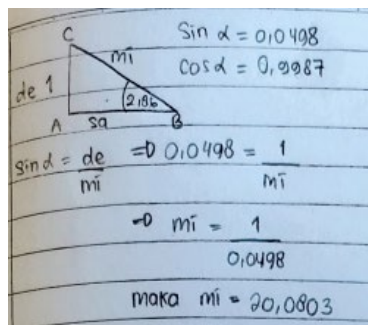 C
Sin α = 0,0498
mi
Cos α = 0,9987
de 1
2,86
A
sa
B
sin α = de/mi ⇒ 0,0498 = 1/mi
⇒ mi = 1/0,0498
maka mi = 20,0803